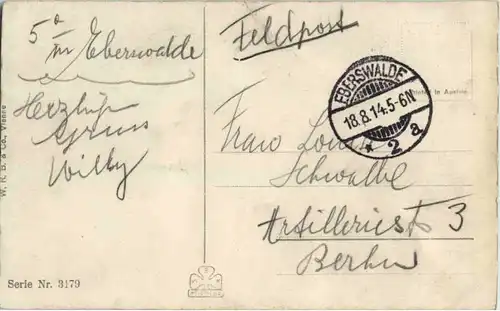 Feldpost
in Eberswalde
Herzlich
Gruss
Willy
EBERSWALDE
18.8.14.5-6N
* 2 a
in Austria
Frau Louise
Schwalbe
Artilleriest 3
Berlin
W. R. B. & Co., Vienne
Serie Nr. 3179